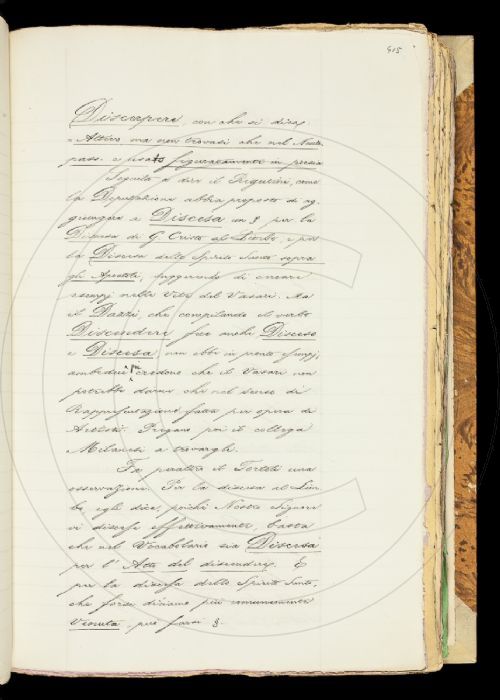 415
Discepere, con che si dice:
Attivo ma non trovasi che nel Neutr.
pass. e posto figuratamente in poesia
Seguita a dire il Rigutini, come
la Deputazione abbia proposto di ag-
giungere a Discesa un § per la
Discesa di G. Cristo al Limbo, e per
la Discesa dello Spirito Santo sopra
gli Apostoli, suggerendo di cercare
esempj nelle Vite del Vasari. Ma
il Dazzi, che compilando il verbo
Discendere fece anche Disceso
e Discesa, non ebbe in pronto esempj,
ambedue poi credono che il Vasari non
potrebbe darne che nel senso di
Rappresentazione fatta per opera di
Artisti. Pregano poi il collega
Milanesi a trovargli.
Fa peraltro il Tortoli una
osservazione. Per la discesa al Lim-
bo, egli dice, poichè Nostro Signore
vi discese effettivamente, basta
che nel Vocabolario sia Discesa
per l'Atto del discendere. E
per la discesa dello Spirito Santo,
che forse diciamo più comunemente
Venuta, può farsi §.